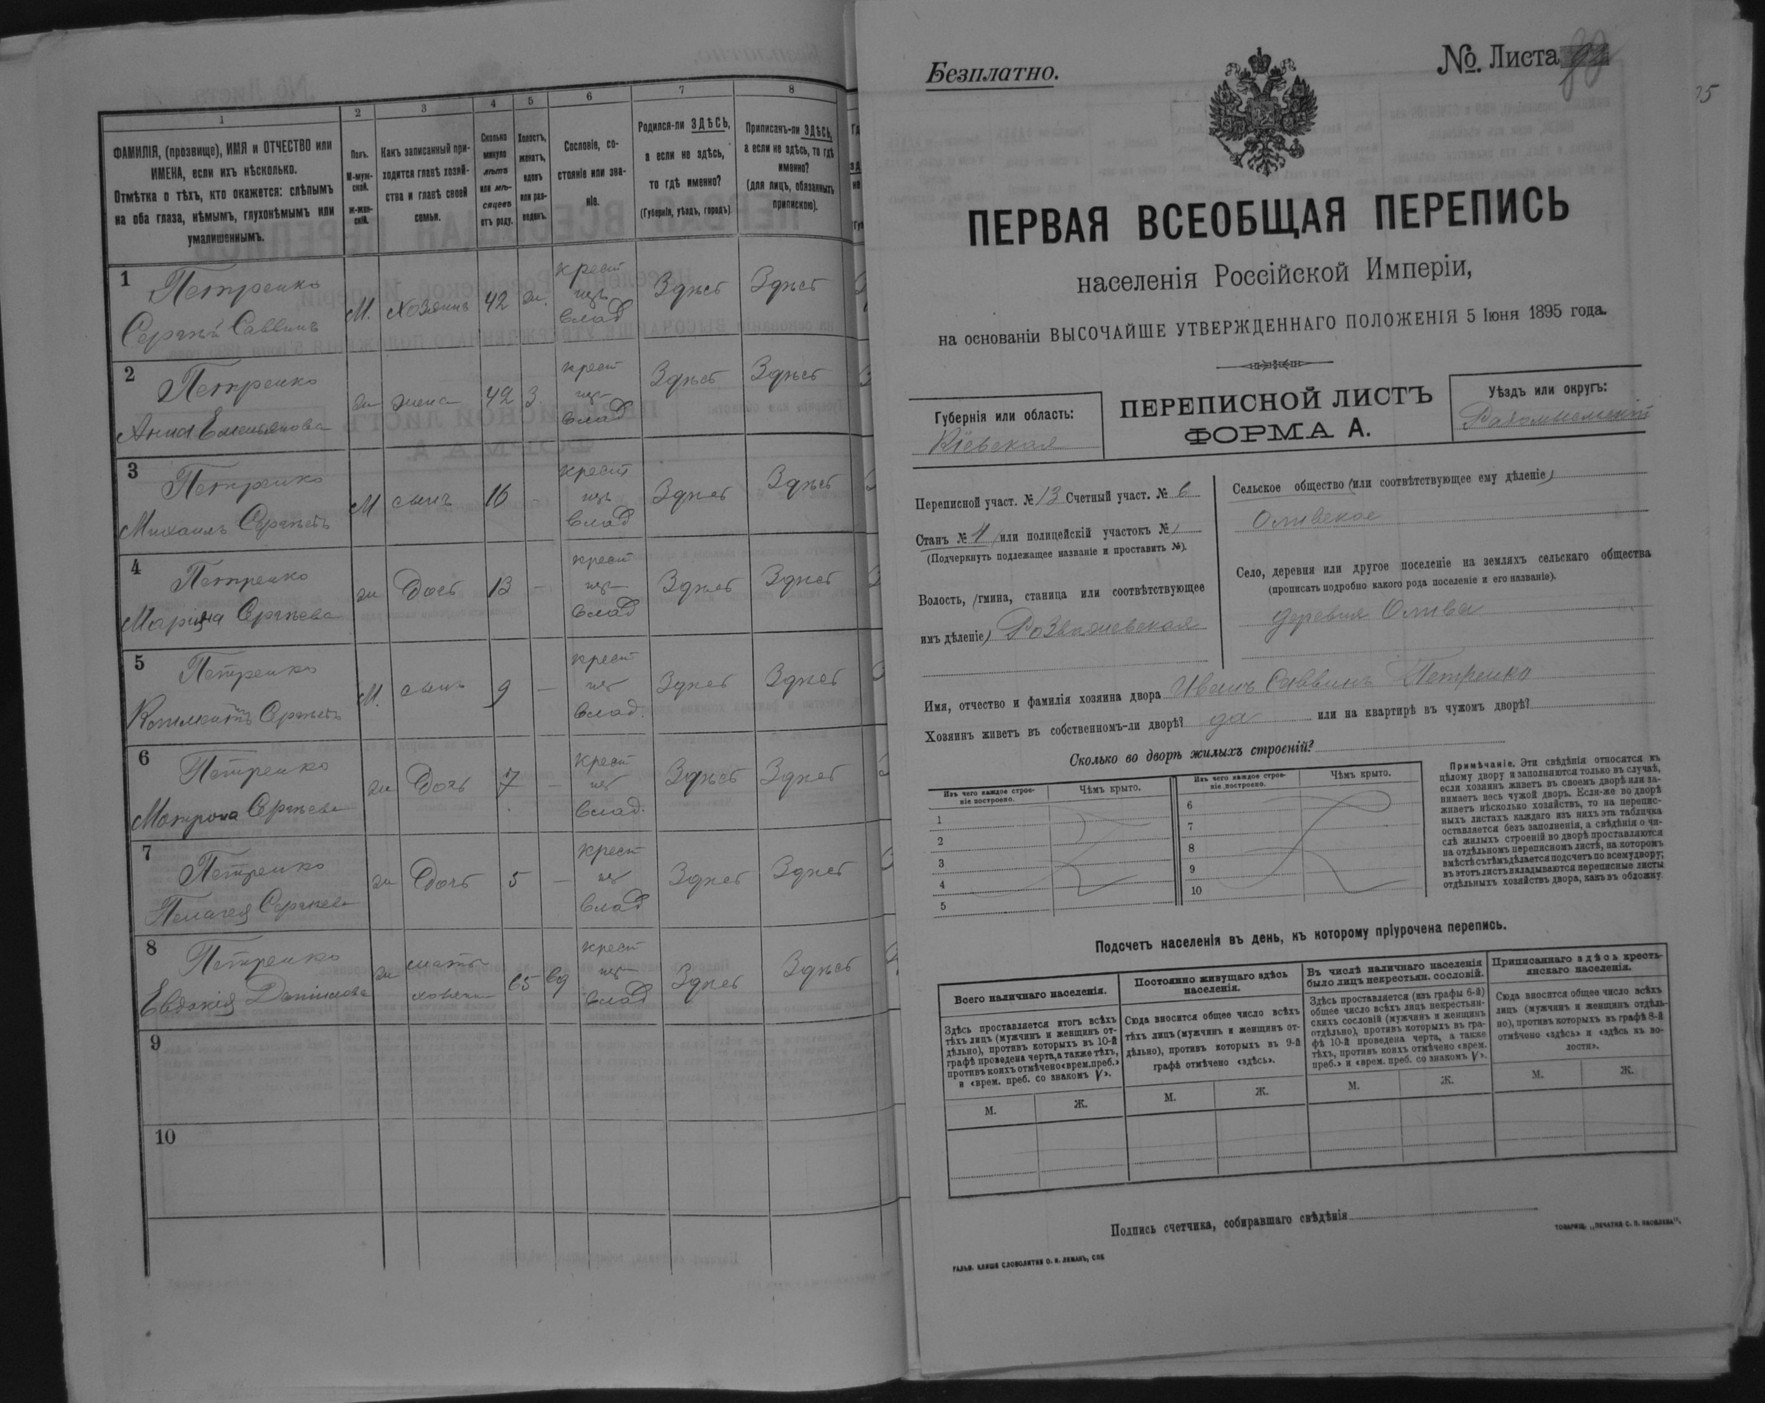 1
2
3
4
5
6
7
8
ФАМИЛІЯ, (прозвище), ИМЯ и ОТЧЕСТВО или
ИМЕНА, если ихъ нѣсколько.
Отмѣтка о тѣхъ, кто окажется: слѣпымъ
на оба глаза, нѣмымъ, глухонѣмымъ или
умалишеннымъ.
Полъ.
М-муж-
ской.
Ж-жен-
скій.
Какъ записанный при-
ходится главѣ хозяй-
ства и главѣ своей
семьи.
Сколько
минуло
лѣтъ
или мѣ-
сяцевъ
отъ роду.
Холостъ,
женатъ,
вдовъ
или раз-
веденъ.
Сословіе, со-
стояніе или зва-
ніе.
Родился-ли ЗДѢСЬ,
а если не здѣсь,
то гдѣ именно?
(Губернія, уѣздъ, городъ)
Приписанъ-ли ЗДѢСЬ,
а если не здѣсь, то гдѣ
именно?
(для лицъ, обязанныхъ
припискою).
1 Петренко
Сергѣй Саввинъ
М. хозяинъ 42 ж. крест из влад Здѣсь Здѣсь
2 Петренко
Анна Емельянова
ж жена 42 З крест из влад Здѣсь Здѣсь
3 Петренко
Михаилъ Сергѣевъ
М сынъ 16 - крест из влад Здѣсь Здѣсь
4 Петренко
Марина Сергѣева
ж дочь 13 - крест из влад Здѣсь Здѣсь
5 Петренко
Сергѣевъ
М. сынъ 9 - крест из влад. Здѣсь Здѣсь
6 Петренко
Матрона Сергѣева
ж дочь 7 - крест из влад. Здѣсь Здѣсь
7 Петренко
Пелагея Сергѣева
ж дочь 5 - крест из влад Здѣсь Здѣсь
8 Петренко
Евдокія Данилова
ж мать хозяина 65 вд крест из влад Здѣсь Здѣсь
9
10
Безплатно.
№ Листа
ПЕРВАЯ ВСЕОБЩАЯ ПЕРЕПИСЬ
населенія Россійской Имперіи,
на основаніи ВЫСОЧАЙШЕ УТВЕРЖДЕННАГО ПОЛОЖЕНІЯ 5 Іюня 1895 года.
Губернія или область:
Кіевская
ПЕРЕПИСНОЙ ЛИСТЪ
ФОРМА А.
Уѣздъ или округъ:
Радомысльскій
Переписной участ. № 13 Счетный участ. № 6
Станъ № 4 или полицейскій участокъ №
(Подчеркнуть подлежащее названіе и проставить №).
Волость, (гмина, станица или соотвѣтствующее
имъ дѣленіе) Розважевская
Сельское общество (или соотвѣтствующее ему дѣленіе)
Оливское
Село, деревня или другое поселеніе на земляхъ сельскаго общества
(прописать подробно какого рода поселеніе и его названіе).
деревня Олива
Имя, отчество и фамилія хозяина двора Иванъ Саввинъ Петренко
Хозяинъ живетъ въ собственномъ-ли дворѣ? да или на квартирѣ въ чужомъ дворѣ?
Сколько во дворѣ жилыхъ строеній?
Изъ чего каждое строе-
ніе построено.
Чѣмъ крыто.
Изъ чего каждое строе-
ніе построено.
Чѣмъ крыто.
1
2
3
4
5
6
7
8
9
10
Примѣчаніе. Эти свѣдѣнія относятся къ
цѣлому двору и заполняются только въ случаѣ,
если хозяинъ живетъ въ своемъ дворѣ или за-
нимаетъ весь чужой дворъ. Если-же во дворѣ
живетъ нѣсколько хозяйствъ, то на перепис-
ныхъ листахъ каждаго изъ нихъ эта табличка
оставляется безъ заполненія, а свѣдѣнія о чи-
слѣ жилыхъ строеній во дворѣ проставляются
на отдѣльномъ переписномъ листѣ, на которомъ
вмѣстѣ съ тѣмъ дѣлается подсчетъ по всему двору;
въ этотъ листъ вкладываются переписные листы
отдѣльныхъ хозяйствъ двора, какъ въ обложку.
Подсчетъ населенія въ день, къ которому пріурочена перепись.
Всего наличнаго населенія.
Постоянно живущаго здѣсь
населенія.
Въ числѣ наличнаго населенія
было лицъ некрестьян. сословій.
Приписаннаго здѣсь кресть-
янскаго населенія.
Здѣсь проставляется итогъ всѣхъ
тѣхъ лицъ (мужчинъ и женщинъ от-
дѣльно), противъ которыхъ въ 10-й
графѣ проведена черта, а также тѣхъ,
противъ коихъ отмѣчено «врем. преб.»
и «врем. преб. со знакомъ V».
Сюда вносится общее число всѣхъ
тѣхъ лицъ (мужчинъ и женщинъ от-
дѣльно), противъ которыхъ въ 9-й
графѣ отмѣчено «здѣсь».
Здѣсь проставляется (изъ графы 6-й)
общее число всѣхъ лицъ некрестьян-
скихъ сословій (мужчинъ и женщинъ
отдѣльно), противъ которыхъ въ гра-
фѣ 10-й проведена черта, а также
тѣхъ, противъ коихъ отмѣчено «врем.
преб.» и «врем. преб. со знакомъ V».
Сюда вносится общее число всѣхъ
лицъ (мужчинъ и женщинъ отдѣль-
но), противъ которыхъ въ графѣ 8-й
отмѣчено «здѣсь» и «здѣсь къ во-
лости».
М. Ж. М. Ж. М. Ж. М. Ж.
Подпись счетчика, собиравшаго свѣдѣнія